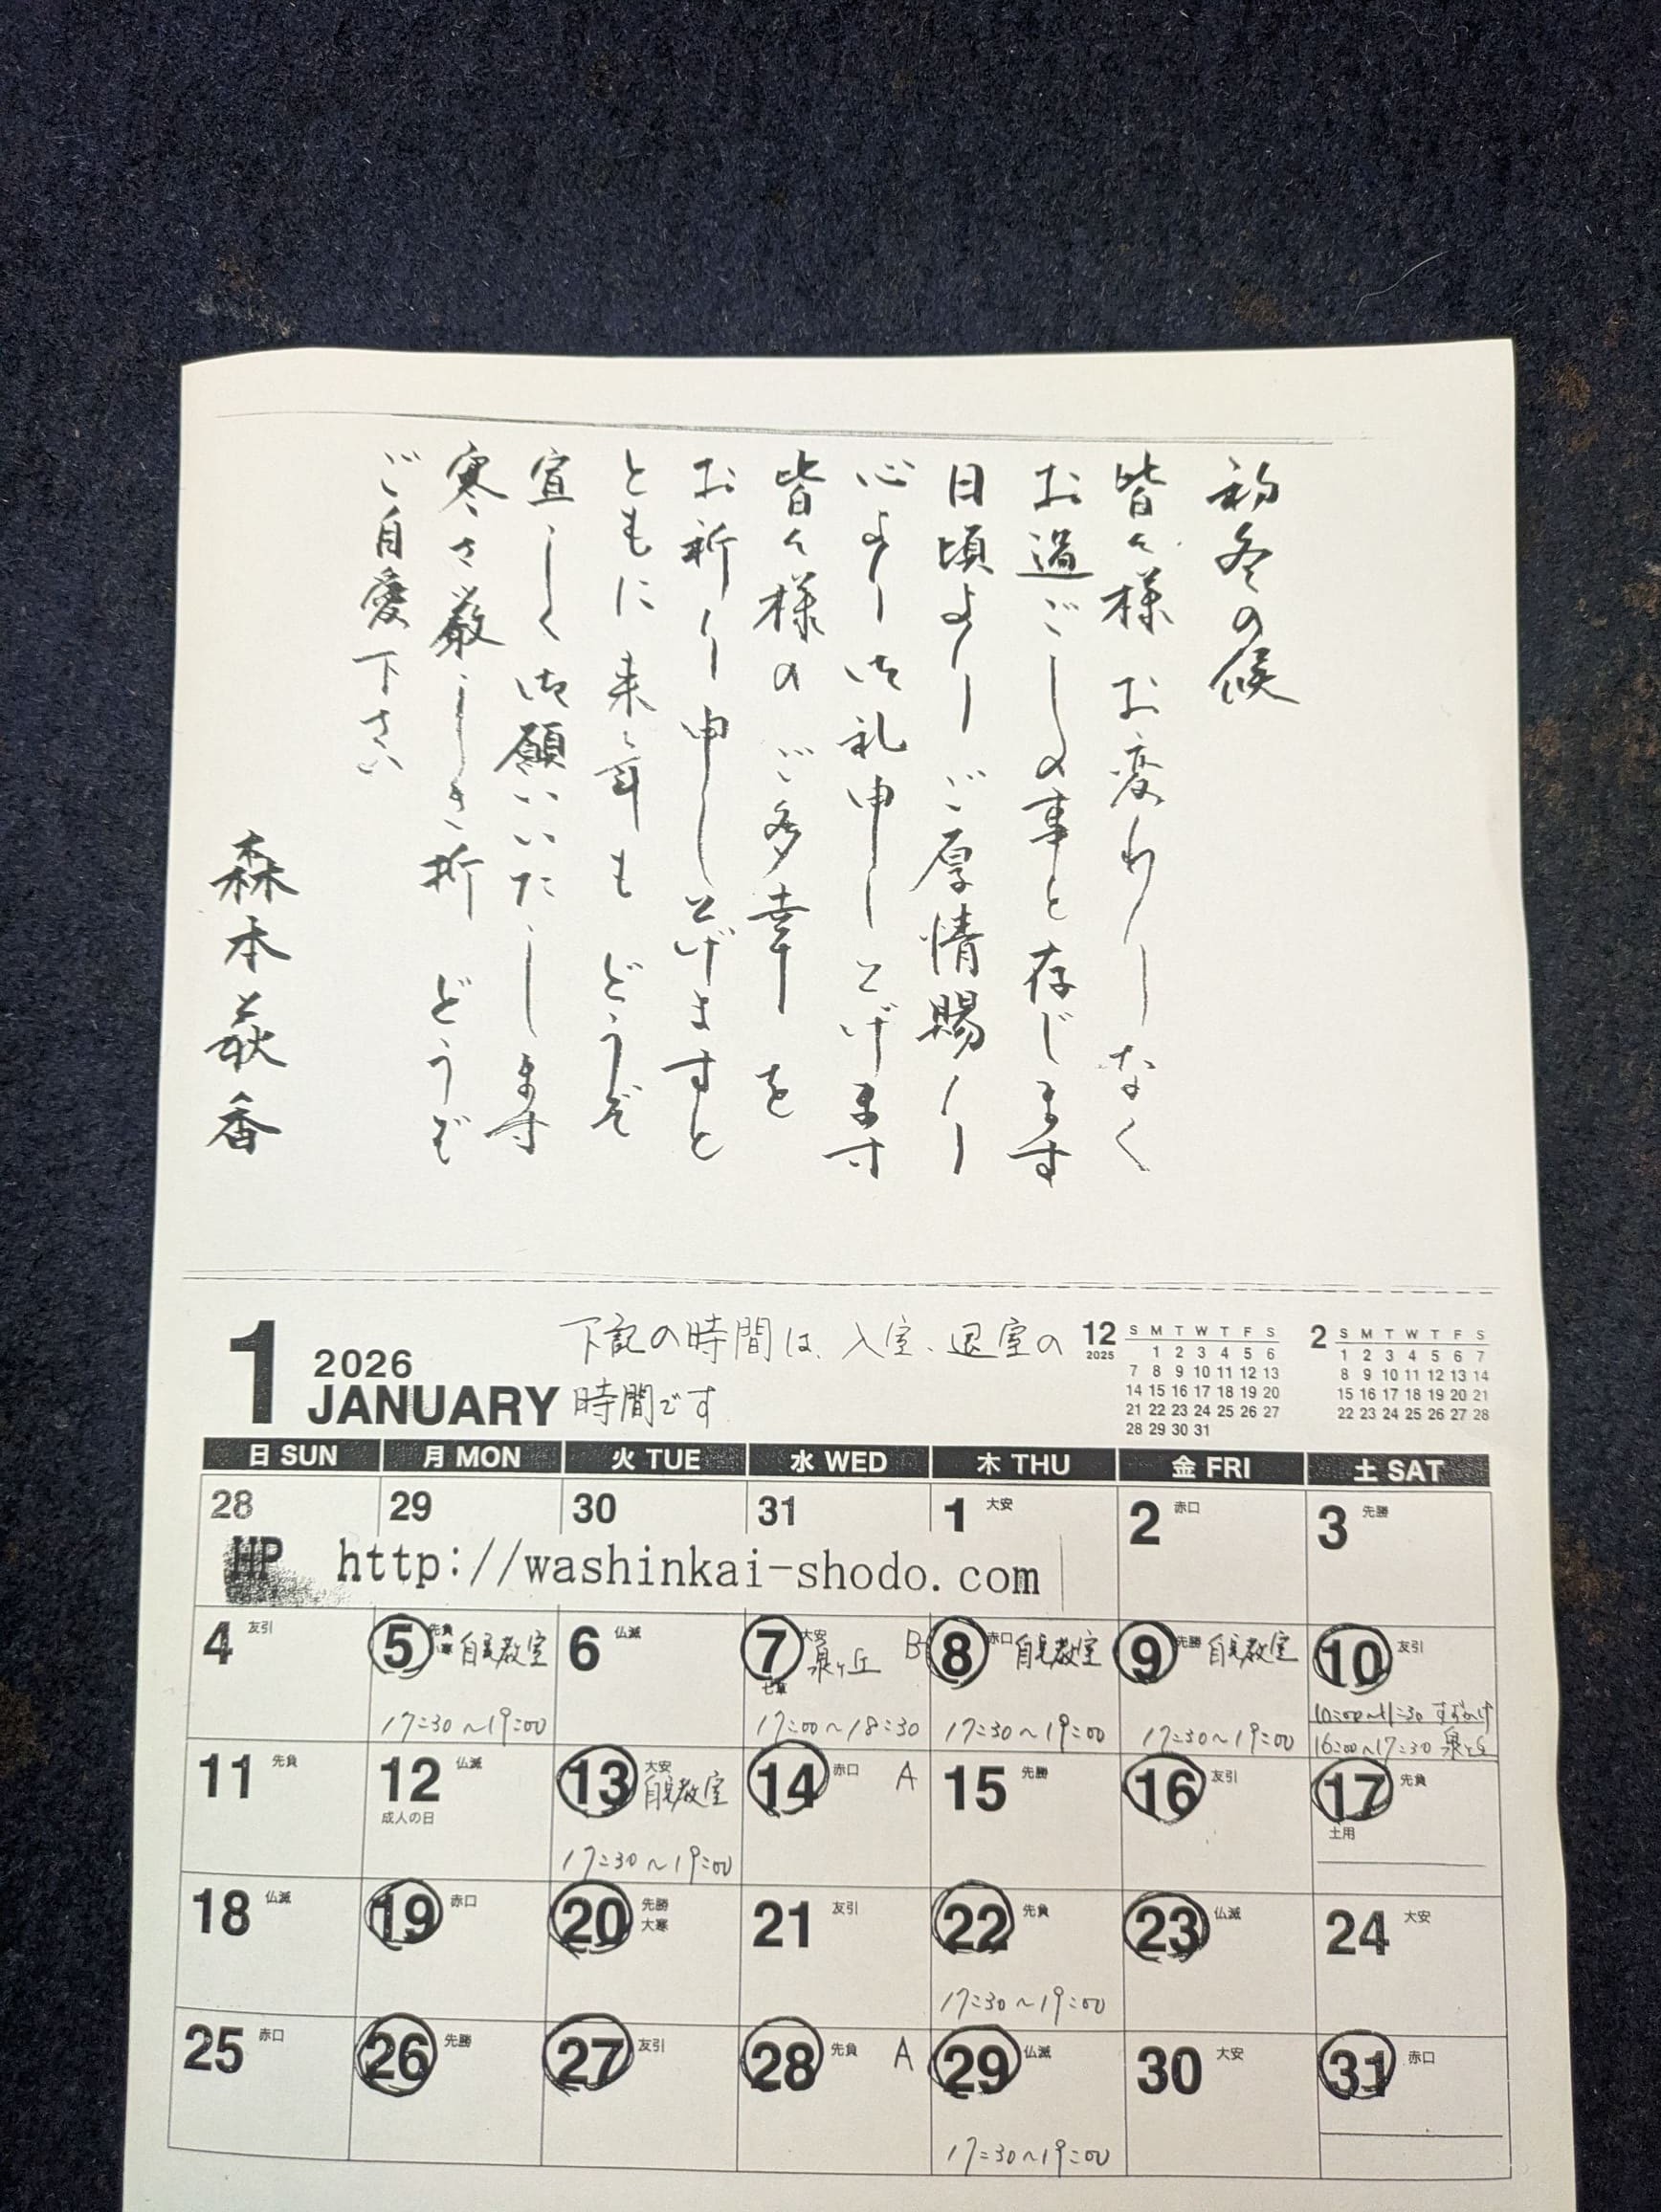 初冬の候
皆々様 お変わりなく
お過ごしの事と存じます
日頃より ご厚情賜り
心より御礼申し上げます
皆々様の ご多幸を
お祈り申し上げますと
ともに来年も どうぞ
宜しく御願いいたします
寒さ厳しき折 どうぞ
ご自愛下さい
森本萩香
1 2026 JANUARY
下記の時間は、入室、退室の
時間です
12 2025
S M T W T F S
1 2 3 4 5 6
7 8 9 10 11 12 13
14 15 16 17 18 19 20
21 22 23 24 25 26 27
28 29 30 31
2
S M T W T F S
1 2 3 4 5 6 7
8 9 10 11 12 13 14
15 16 17 18 19 20 21
22 23 24 25 26 27 28
日 SUN 月 MON 火 TUE 水 WED 木 THU 金 FRI 土 SAT
28 29 30 31 1 大安 2 赤口 3 先勝
HP http://washinkai-shodo.com
4 友引 5 先負 小寒 自宅教室 6 仏滅 7 大安 泉ヶ丘 B 8 赤口 自宅教室 9 先勝 自宅教室 10 友引
七草
17:30～19:00 17:00～18:30 17:30～19:00 17:30～19:00 10:00～11:30 すずかけ
16:00～17:30 泉ヶ丘
11 先負 12 仏滅 13 大安 自宅教室 14 赤口 A 15 先勝 16 友引 17 先負
成人の日 土用
17:30～19:00
18 仏滅 19 赤口 20 先勝 大寒 21 友引 22 先負 23 仏滅 24 大安
17:30～19:00
25 赤口 26 先勝 27 友引 28 先負 A 29 仏滅 30 大安 31 赤口
17:30～19:00